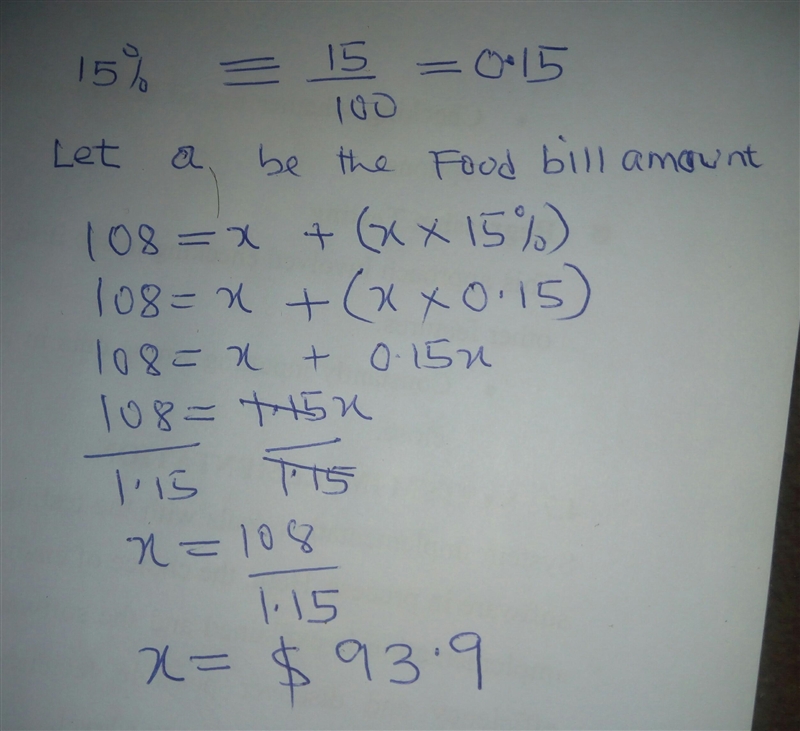 15% ≡ 15/100 = 0.15
Let a, be the Food bill amount
108 = x + (x × 15%)
108 = x + (x × 0.15)
108 = x + 0.15x
108/1.15 = 1.15x/1.15
x = 108/1.15
x = $93.9